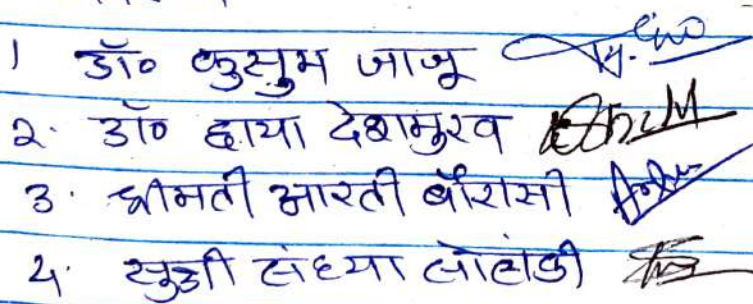 1 डॉ० कुसुम जाजू
२. डॉ० छाया देशमुख
३. श्रीमती आरती बौरासी
४. सुश्री संध्या लोखंडी